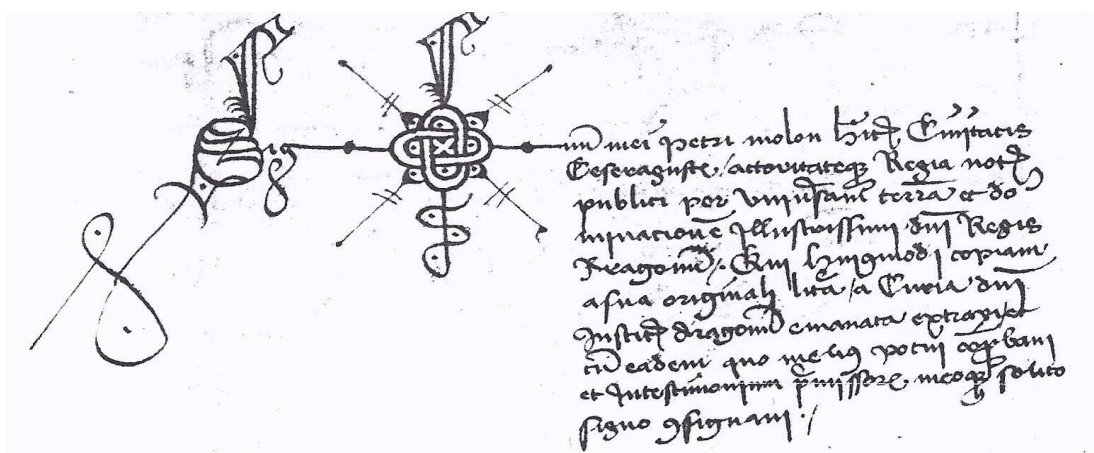 Sig num mei petri molon hitr Civitatis
Cesarauguste, actoritateque Regia notr
publici per universam terram et do
minacionem Illustrissimi dni Regis
Aragonum. Qui huiusmodi copiam
a sua originali litra a Curia dni
Justicie Aragonum emanata extraxi et
cum eadem quo melius potui comprobavi
et In testimonium premissorum meoque solito
signo consignavi